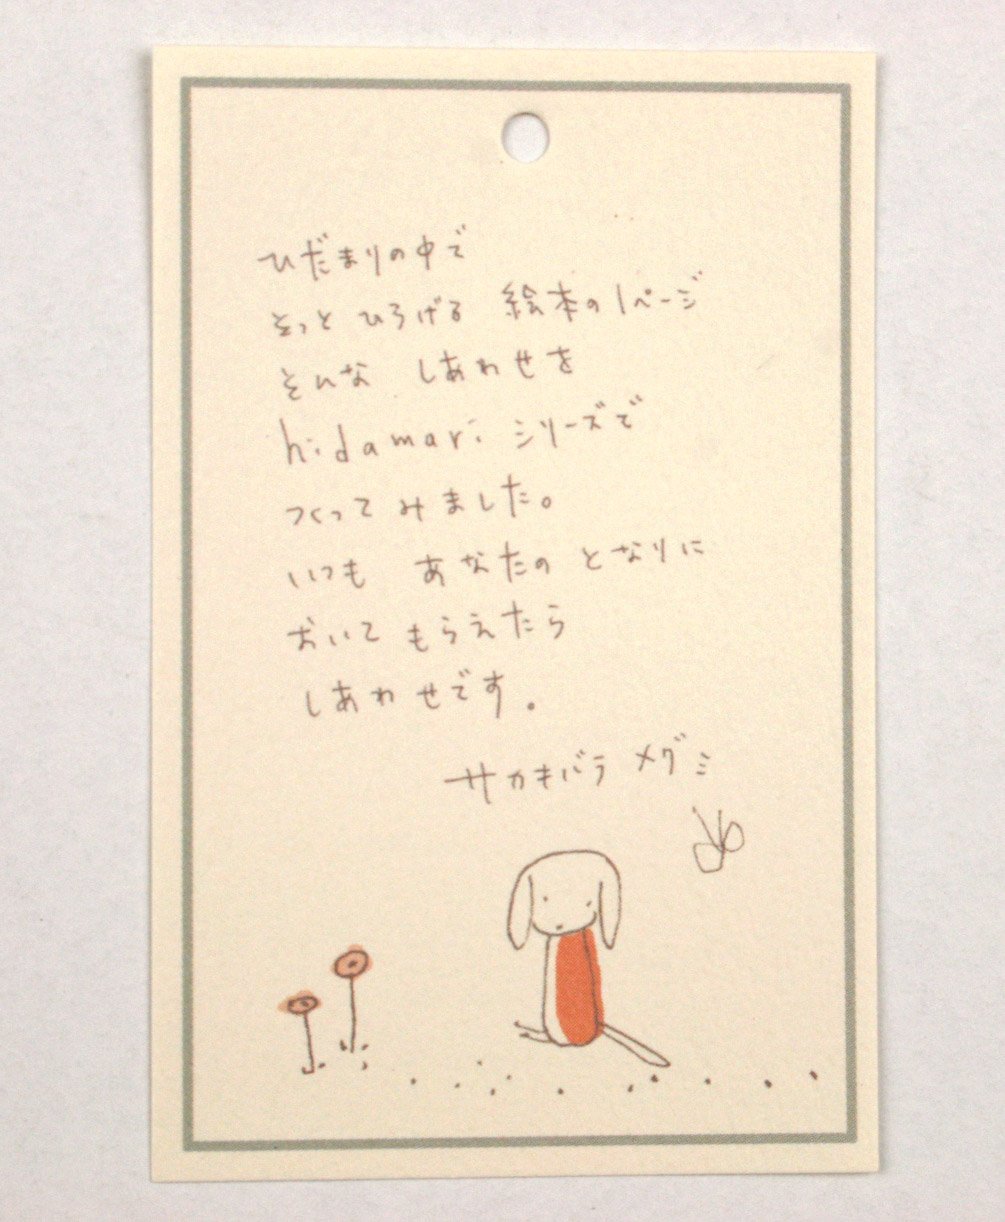 ひだまりの中で
そっと ひろげる 絵本の1ページ
そんな しあわせを
hidamari シリーズで
つくってみました。
いつも あなたの となりに
おいて もらえたら
しあわせです。
サカキバラ メグミ